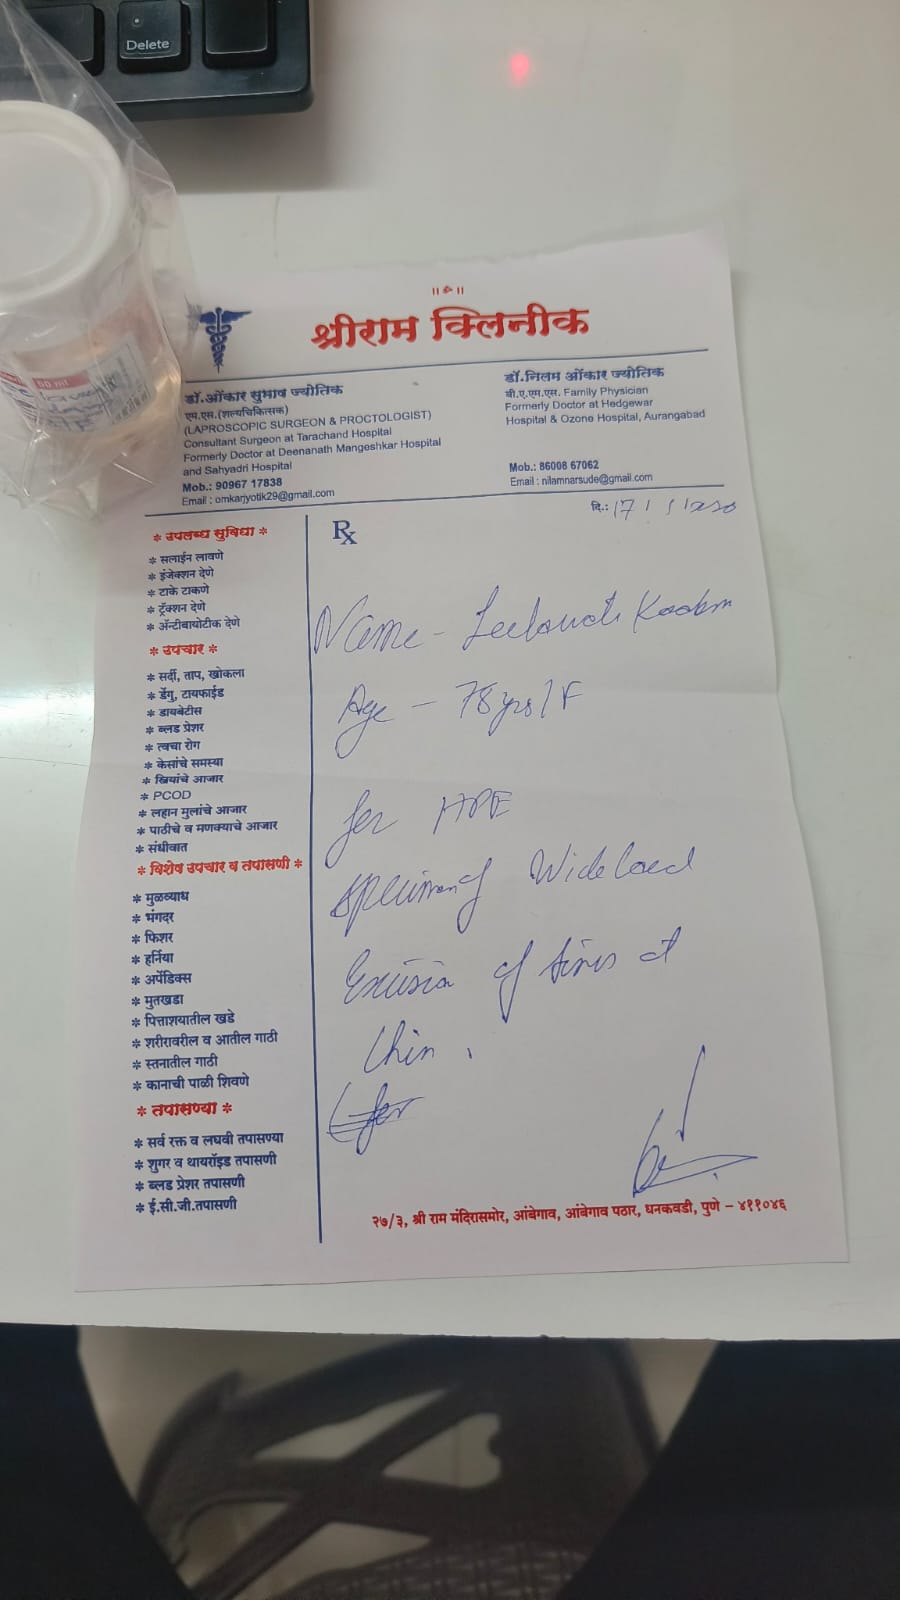 Delete
50 ml
॥ॐ॥
श्रीराम क्लिनीक
डॉ.ओंकार सुभाष ज्योतिक
एम.एस.(शल्यचिकित्सक)
(LAPROSCOPIC SURGEON & PROCTOLOGIST)
Consultant Surgeon at Tarachand Hospital
Formerly Doctor at Deenanath Mangeshkar Hospital
and Sahyadri Hospital
Mob.: 90967 17838
Email : omkarjyotik29@gmail.com
डॉ.निलम ओंकार ज्योतिक
बी.ए.एम.एस. Family Physician
Formerly Doctor at Hedgewar
Hospital & Ozone Hospital, Aurangabad
Mob.: 86008 67062
Email : nilamnarsude@gmail.com
दि.: 17
* उपलब्ध सुविधा *
* सलाईन लावणे
* इंजेक्शन देणे
* टाके टाकणे
* ट्रॅक्शन देणे
* ॲन्टीबायोटीक देणे
* उपचार *
* सर्दी, ताप, खोकला
* डेंगु, टायफाईड
* डायबेटीस
* ब्लड प्रेशर
* त्वचा रोग
* केसांचे समस्या
* स्त्रियांचे आजार
* PCOD
* लहान मुलांचे आजार
* पाठीचे व मणक्याचे आजार
* संधीवात
* विशेष उपचार व तपासणी *
* मुळव्याध
* भंगदर
* फिशर
* हर्निया
* अपेंडिक्स
* मुतखडा
* पित्ताशयातील खडे
* शरीरावरील व आतील गाठी
* स्तनातील गाठी
* कानाची पाळी शिवणे
* तपासण्या *
* सर्व रक्त व लघवी तपासण्या
* शुगर व थायरॉइड तपासणी
* ब्लड प्रेशर तपासणी
* ई.सी.जी.तपासणी
Rx
Name - Leelavati Kadam
Age - 78 yrs / F
for HPE
specimen of Wide local
Excision of sinus at
Chin.
२७/३, श्री राम मंदिरासमोर, आंबेगाव, आंबेगाव पठार, धनकवडी, पुणे – ४११०४६